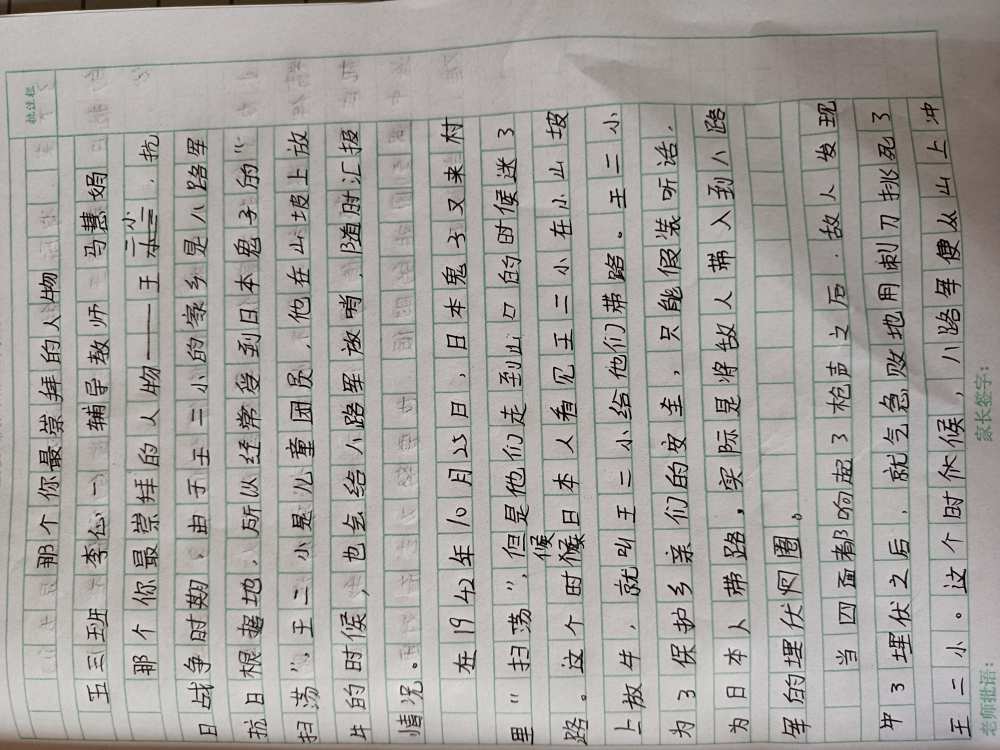 批注栏
那个你最崇拜的人物
五三班 李心一 辅导教师 马慧娟
那个你最崇拜的人物——王二小，抗
日战争时期，由于王二小的家乡是八路军
抗日根据地，所以经常受到日本鬼子的“
扫荡”，王二小是儿童团员，他在山坡上放
牛的时候，也会给八路军放哨，随时汇报
情况。
在1942年10月25日，日本鬼子又来村
里“扫荡”，但是他们走到山口的时候迷了
路。这个时候日本人看见王二小在小山坡
上放牛，就叫王二小给他们带路。王二小
为了保护乡亲们的安全，只能假装听话，
为日本人带路，实际是将敌人带入到八路
军的埋伏圈。
当四面都响起了枪声之后，敌人发现
中了埋伏之后，就气急败地用刺刀挑死了
王二小。这个时休候，八路军便从山上冲
老师批语：
家长签字：